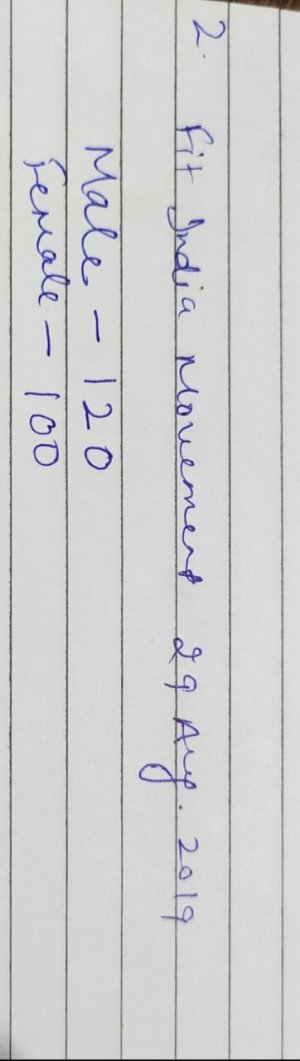 2. Fit India Movement 29 Aug. 2019
Male - 120
Female - 100